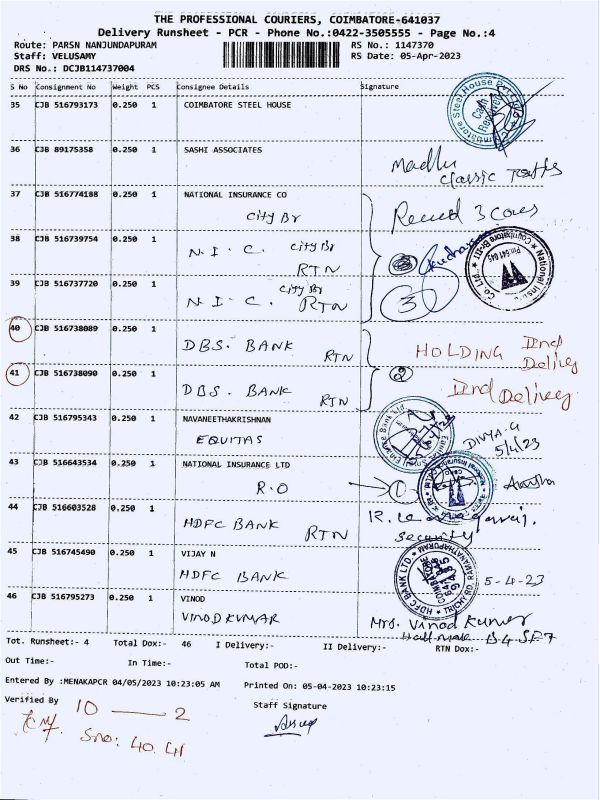 THE PROFESSIONAL COURIERS, COIMBATORE-641037
Delivery Runsheet - PCR - Phone No.:0422-3505555 - Page No.:4
Route: PARSN NANJUNDAPURAM RS No.: 1147370
Staff: VELUSAMY RS Date: 05-Apr-2023
DRS No.: DCJB114737004
S No Consignment No Weight PCS Consignee Details Signature
35 CJB 516793173 0.250 1 COIMBATORE STEEL HOUSE
Cash Recovery
36 CJB 89175358 0.250 1 SASHI ASSOCIATES
Madhu
Classic
37 CJB 516774188 0.250 1 NATIONAL INSURANCE CO
City Br
3
38 CJB 516739754 0.250 1
N.I.C. City Br
RTN
39 CJB 516737720 0.250 1
N.I.C. City Br RTN
3
40 CJB 516738089 0.250 1
DBS. BANK RTN
HOLDING IInd
Delivery
41 CJB 516738090 0.250 1
DBS. BANK RTN
2
IInd Delivery
42 CJB 516795343 0.250 1 NAVANEETHAKRISHNAN
EQUITAS
DIVYA.G
5/4/23
43 CJB 516643534 0.250 1 NATIONAL INSURANCE LTD
R.O
1
44 CJB 516603528 0.250 1
HDFC BANK RTN
Security
45 CJB 516745490 0.250 1 VIJAY N
HDFC BANK
HDFC BANK LTD. TRICHY RD. RAMANATHAPURAM
5-4-23
46 CJB 516795273 0.250 1 VINOD
VINOD KUMAR
Mrs. Vinod Kumar
Tot. Runsheet:- 4 Total Dox:- 46 I Delivery:- II Delivery:- RTN Dox:-
Out Time:- In Time:- Total POD:-
Entered By :MENAKAPCR 04/05/2023 10:23:05 AM Printed On: 05-04-2023 10:23:15
Verified By Staff Signature
10 — 2
Sno: 40.41